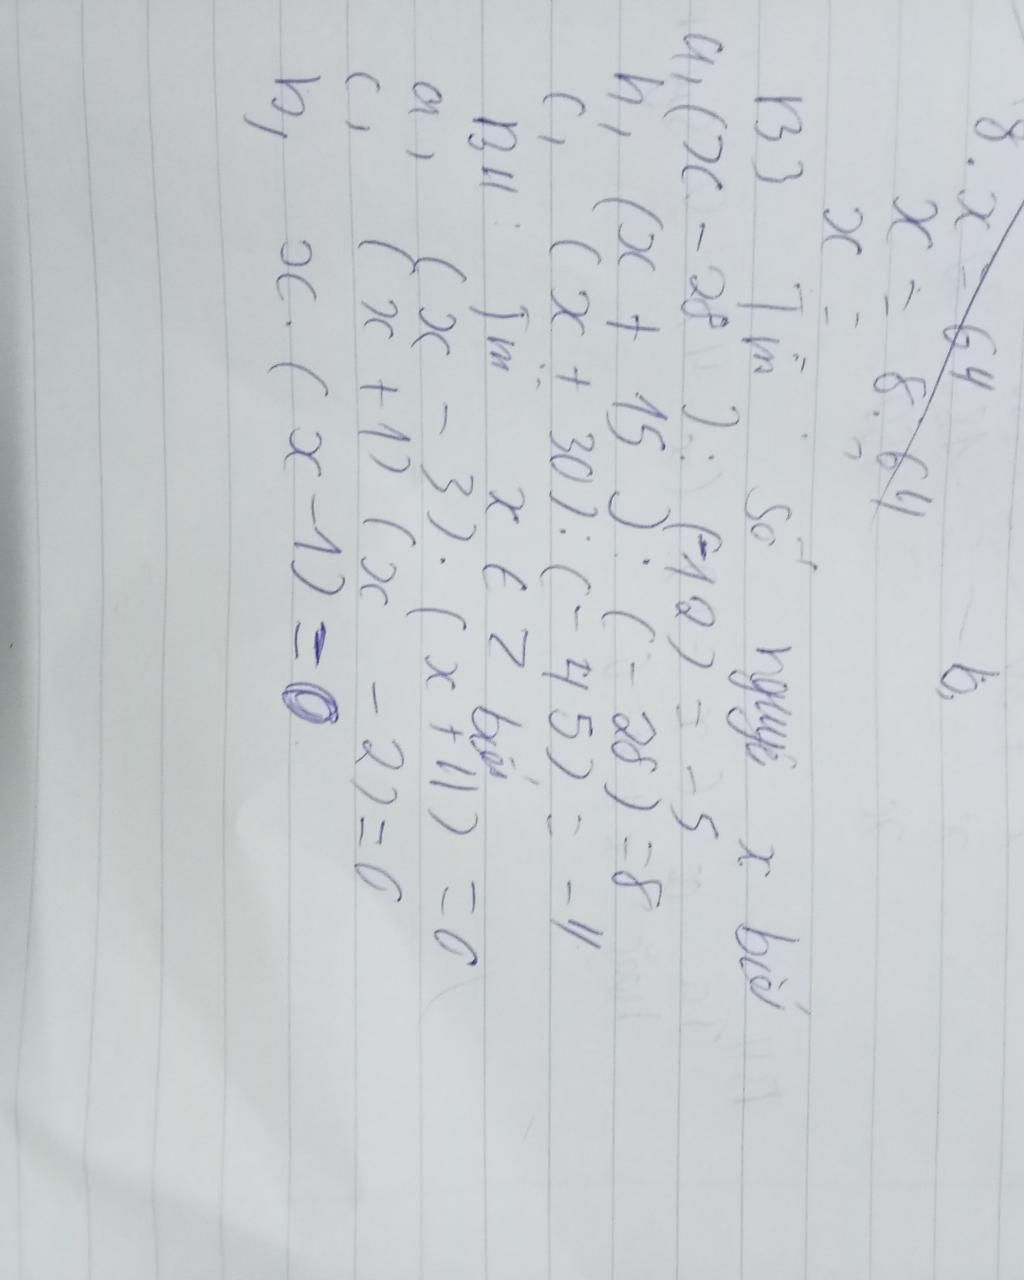 8. x = 64 b,
x = 8. 64
x =
B3 Tìm số nguyê x biế
a, (x - 28) : (-12) = -5
b, (x + 15) : (-28) = 8
c, (x + 30) : (-45) = -4
B4: Tìm x ∈ Z biế
a, (x - 3). (x + 4) = 0
c, (x + 1) (x - 2) = 0
b, x. (x - 1) = 0